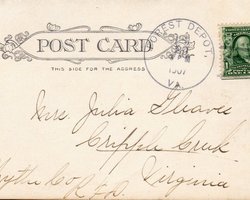 POST CARD
THIS SIDE FOR THE ADDRESS
FOREST DEPOT,
1907
VA.
Mrs. Julia Gleaves
Cripple Creek
Wythe Co Virginia
R.F.D.